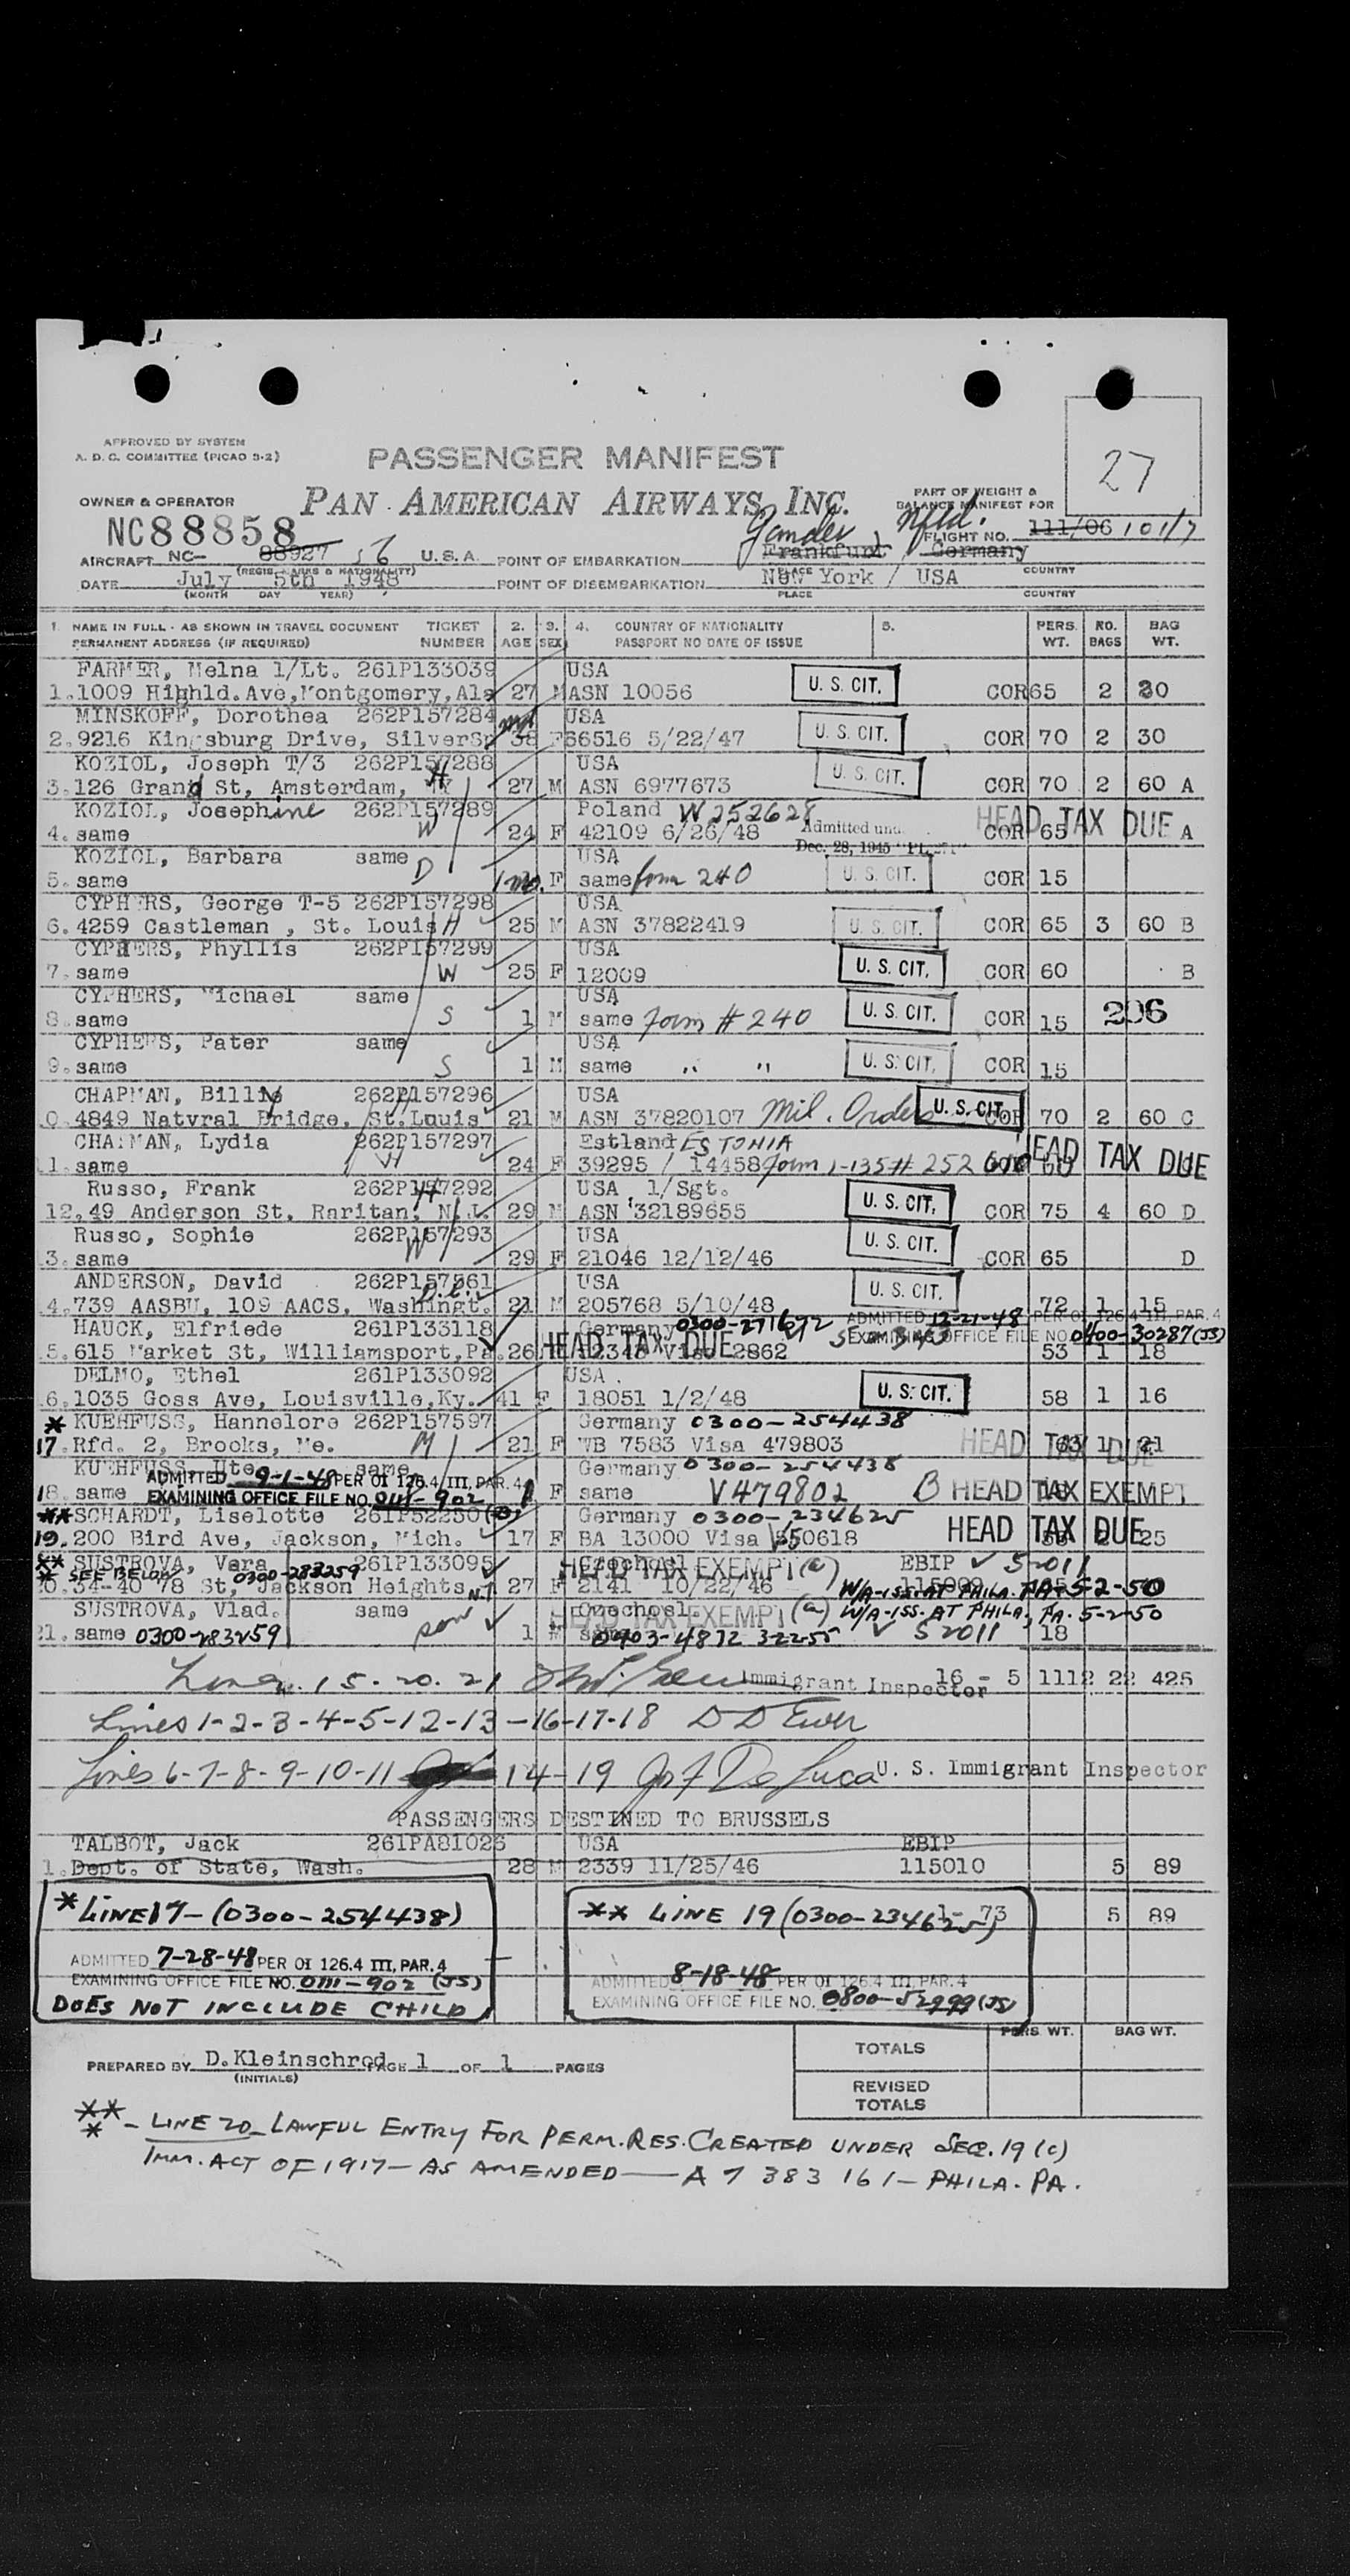 27
APPROVED BY SYSTEM
A. D. C. COMMITTEE (PICAO 3-2)
PASSENGER MANIFEST
OWNER & OPERATOR
PAN AMERICAN AIRWAYS, INC.
PART OF WEIGHT &
BALANCE MANIFEST FOR
NC88858
Gander Nfld.
FLIGHT NO. 111/06 101/7
AIRCRAFT NC- 88927 56 U.S.A. POINT OF EMBARKATION Frankfurt / Germany
(REGIS. MARKS & NATIONALITY) PLACE COUNTRY
DATE July 5th 1948 POINT OF DISEMBARKATION New York / USA
(MONTH DAY YEAR) PLACE COUNTRY
1. NAME IN FULL - AS SHOWN IN TRAVEL DOCUMENT TICKET 2. 3. 4. COUNTRY OF NATIONALITY 5. PERS. NO. BAG
PERMANENT ADDRESS (IF REQUIRED) NUMBER AGE SEX PASSPORT NO DATE OF ISSUE WT. BAGS WT.
FARMER, Melna 1/Lt. 261P133039 USA U. S. CIT.
1. 1009 Highld. Ave, Montgomery, Ala 27 M ASN 10056 COR 65 2 30
MINSKOFF, Dorothea 262P157284 USA U. S. CIT.
2. 9216 Kingsburg Drive, SilverSp 38 F 66516 5/22/47 COR 70 2 30
KOZIOL, Joseph T/3 262P157288 USA U. S. CIT.
3. 126 Grand St, Amsterdam, H 27 M ASN 6977673 COR 70 2 60 A
KOZIOL, Josephine 262P157289 Poland W 252628 HEAD TAX DUE
4. same W 24 F 42109 6/26/48 Admitted COR 65 A
Dec. 28, 1945
KOZIOL, Barbara same USA
5. same D 1 mo. F same form 240 U. S. CIT. COR 15
CYPHERS, George T-5 262P157298 USA
6. 4259 Castleman , St. Louis H 25 M ASN 37822419 U. S. CIT. COR 65 3 60 B
CYPHERS, Phyllis 262P157299 USA
7. same W 25 F 12009 U. S. CIT. COR 60 B
CYPHERS, Michael same USA
8. same S 1 M same form #240 U. S. CIT. COR 15 206
CYPHERS, Pater same USA
9. same S 1 M same " " U. S. CIT. COR 15
CHAPMAN, Billy 262P157296 USA
0. 4849 Natvral Bridge, St. Louis 21 M ASN 37820107 Mil. Orders U. S. CIT. COR 70 2 60 C
CHAPMAN, Lydia 262P157297 Estland ESTONIA HEAD TAX DUE
1. same W 24 F 39295 / 14458 form 1-135 # 252
Russo, Frank 262P157292 USA 1/Sgt.
12. 49 Anderson St, Raritan, N.J. 29 M ASN 32189655 U. S. CIT. COR 75 4 60 D
Russo, Sophie 262P157293 USA
3. same W 29 F 21046 12/12/46 U. S. CIT. COR 65 D
ANDERSON, David 262P157561 USA
4. 739 AASBU, 109 AACS, Washingt. 21 M 205768 5/10/48 U. S. CIT. 72 1 15
HAUCK, Elfriede 261P133118 Germany 0300-271672 ADMITTED 12-21-48 PER OI 126.4 III, PAR. 4
HEAD TAX DUE EXAMINING OFFICE FILE NO. 0400-30287 (JS)
5. 615 Market St, Williamsport, Pa. 26 Visa 2862 53 1 18
DELMO, Ethel 261P133092 USA
6. 1035 Goss Ave, Louisville, Ky. 41 F 18051 1/2/48 U. S. CIT. 58 1 16
* KUEHFUSS, Hannelore 262P157597 Germany 0300-254438 HEAD TAX DUE
17. Rfd. 2, Brooks, Me. M 21 F WB 7583 Visa 479803 63 1 21
KUEHFUSS, Ute same Germany 0300-254438
ADMITTED 9-1-48 PER OI 126.4 III, PAR. 4
18. same F same V479802 B HEAD TAX EXEMPT
EXAMINING OFFICE FILE NO. 0111-902
** SCHARDT, Liselotte 261P52250 Germany 0300-234625 HEAD TAX DUE
19. 200 Bird Ave, Jackson, Mich. 17 F BA 13000 Visa V550618 2 25
*** SUSTROVA, Vera 261P133095 Czechosl HEAD TAX EXEMPT (a) EBIP 52011
SEE BELOW 0300-283259
20. 34-40 78 St, Jackson Heights N.Y. 27 F 2141 10/22/46 W/A-ISS. AT PHILA. PA. 5-2-50
SUSTROVA, Vlad. same Czechosl HEAD TAX EXEMPT (a) W/A-ISS. AT PHILA, PA. 5-2-50
21. same 0300-283259 son 1 M 0403-4872 32255 52011 18
Lines 15-20-21 Immigrant Inspector 16 - 5 1112 22 425
Lines 1-2-3-4-5-12-13-16-17-18 D D Ewer
Lines 6-7-8-9-10-11 14-19 Jos De Luca U. S. Immigrant Inspector
PASSENGERS DESTINED TO BRUSSELS
TALBOT, Jack 261PA81023 USA EBIP
1. Dept. of State, Wash. 28 M 2339 11/25/46 115010 5 89
1- 73 5 89
* LINE 17 - (0300-254438)
ADMITTED 7-28-48 PER OI 126.4 III, PAR. 4
EXAMINING OFFICE FILE NO. 0111-902 (JS)
DOES NOT INCLUDE CHILD
** LINE 19 (0300-234625)
ADMITTED 8-18-48 PER OI 126.4 III, PAR. 4
EXAMINING OFFICE FILE NO. 0800-52999 (JS)
PERS. WT. BAG WT.
TOTALS
REVISED TOTALS
PREPARED BY D. Kleinschrod PAGE 1 OF 1 PAGES
(INITIALS)
*** - LINE 20 - LAWFUL ENTRY FOR PERM. RES. CREATED UNDER SEC. 19 (c)
IMM. ACT OF 1917 - AS AMENDED - A 7 383 161 - PHILA. PA.